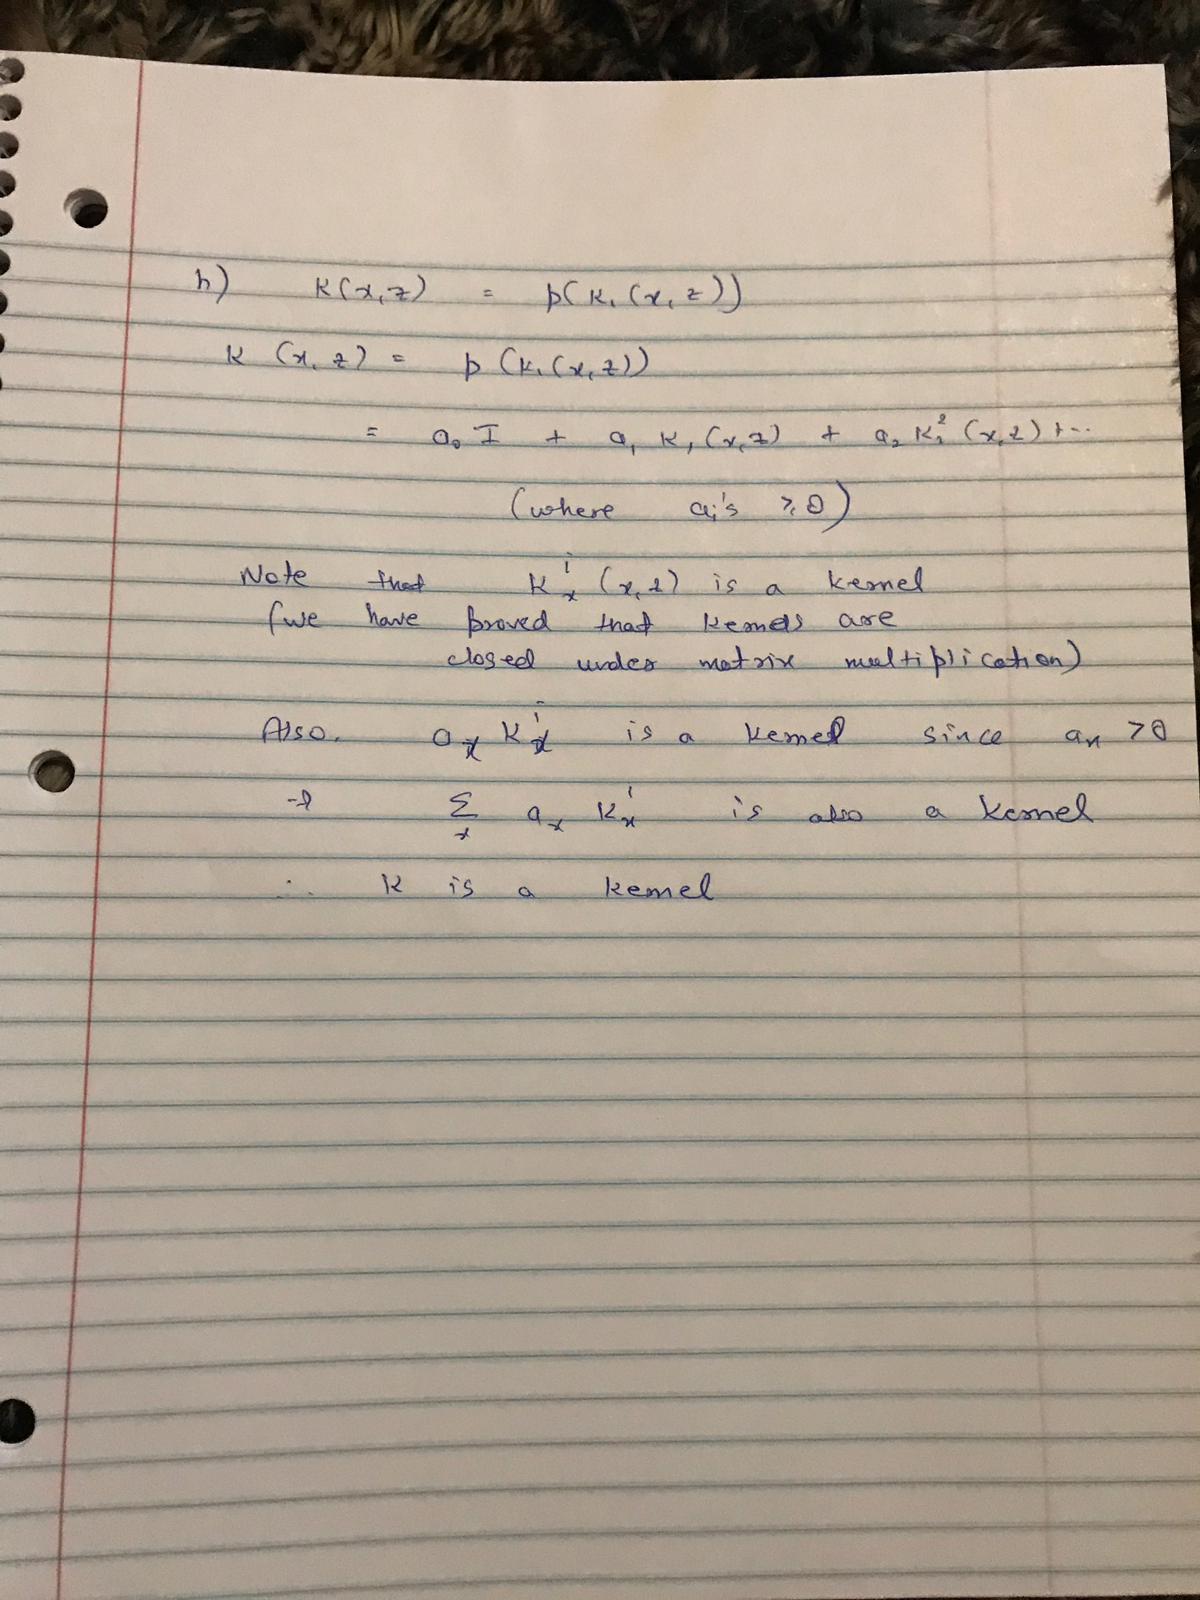 h) K(x,z) = p(K₁(x,z))
K (x,z) = p (K₁(x,z))
= a₀ I + a₁ K₁(x,z) + a₂ K₁² (x,z) + ...
(where aᵢ's ≥ 0)
Note that Kₓⁱ (x,z) is a kernel
(we have proved that kernels are
closed under matrix multiplication)
Also, aₓ Kₓⁱ is a kernel since aₓ > 0
Σₓ aₓ Kₓⁱ is also a kernel
∴ K is a kernel